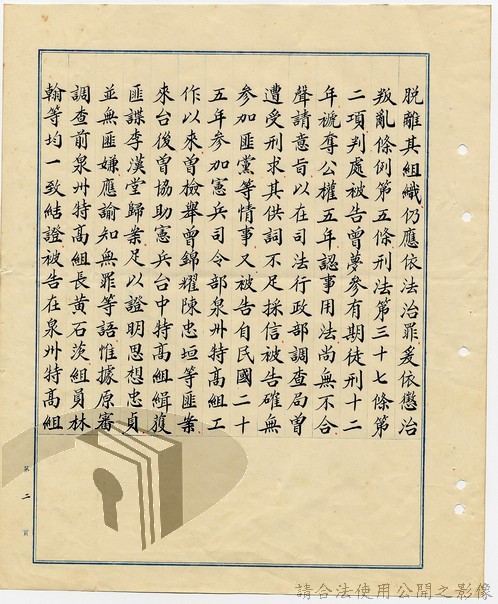 脫離其組織仍應依法治罪爰依懲治
叛亂條例第五條刑法第三十七條第
二項判處被告曾夢參有期徒刑十二
年褫奪公權五年認事用法尚無不合
聲請意旨以在司法行政部調查局曾
遭受刑求其供詞不足採信被告確無
參加匪黨等情事又被告自民國二十
五年參加憲兵司令部泉州特高組工
作以來曾檢舉曾錦耀陳忠垣等匪案
來台後曾協助憲兵台中特高組緝獲
匪諜李漢堂歸案足以證明思想忠貞
並無匪嫌應諭知無罪等語惟據原審
調查前泉州特高組長黃石茨組員林
翰等均一致結證被告在泉州特高組
第二頁
請合法使用公開之影像